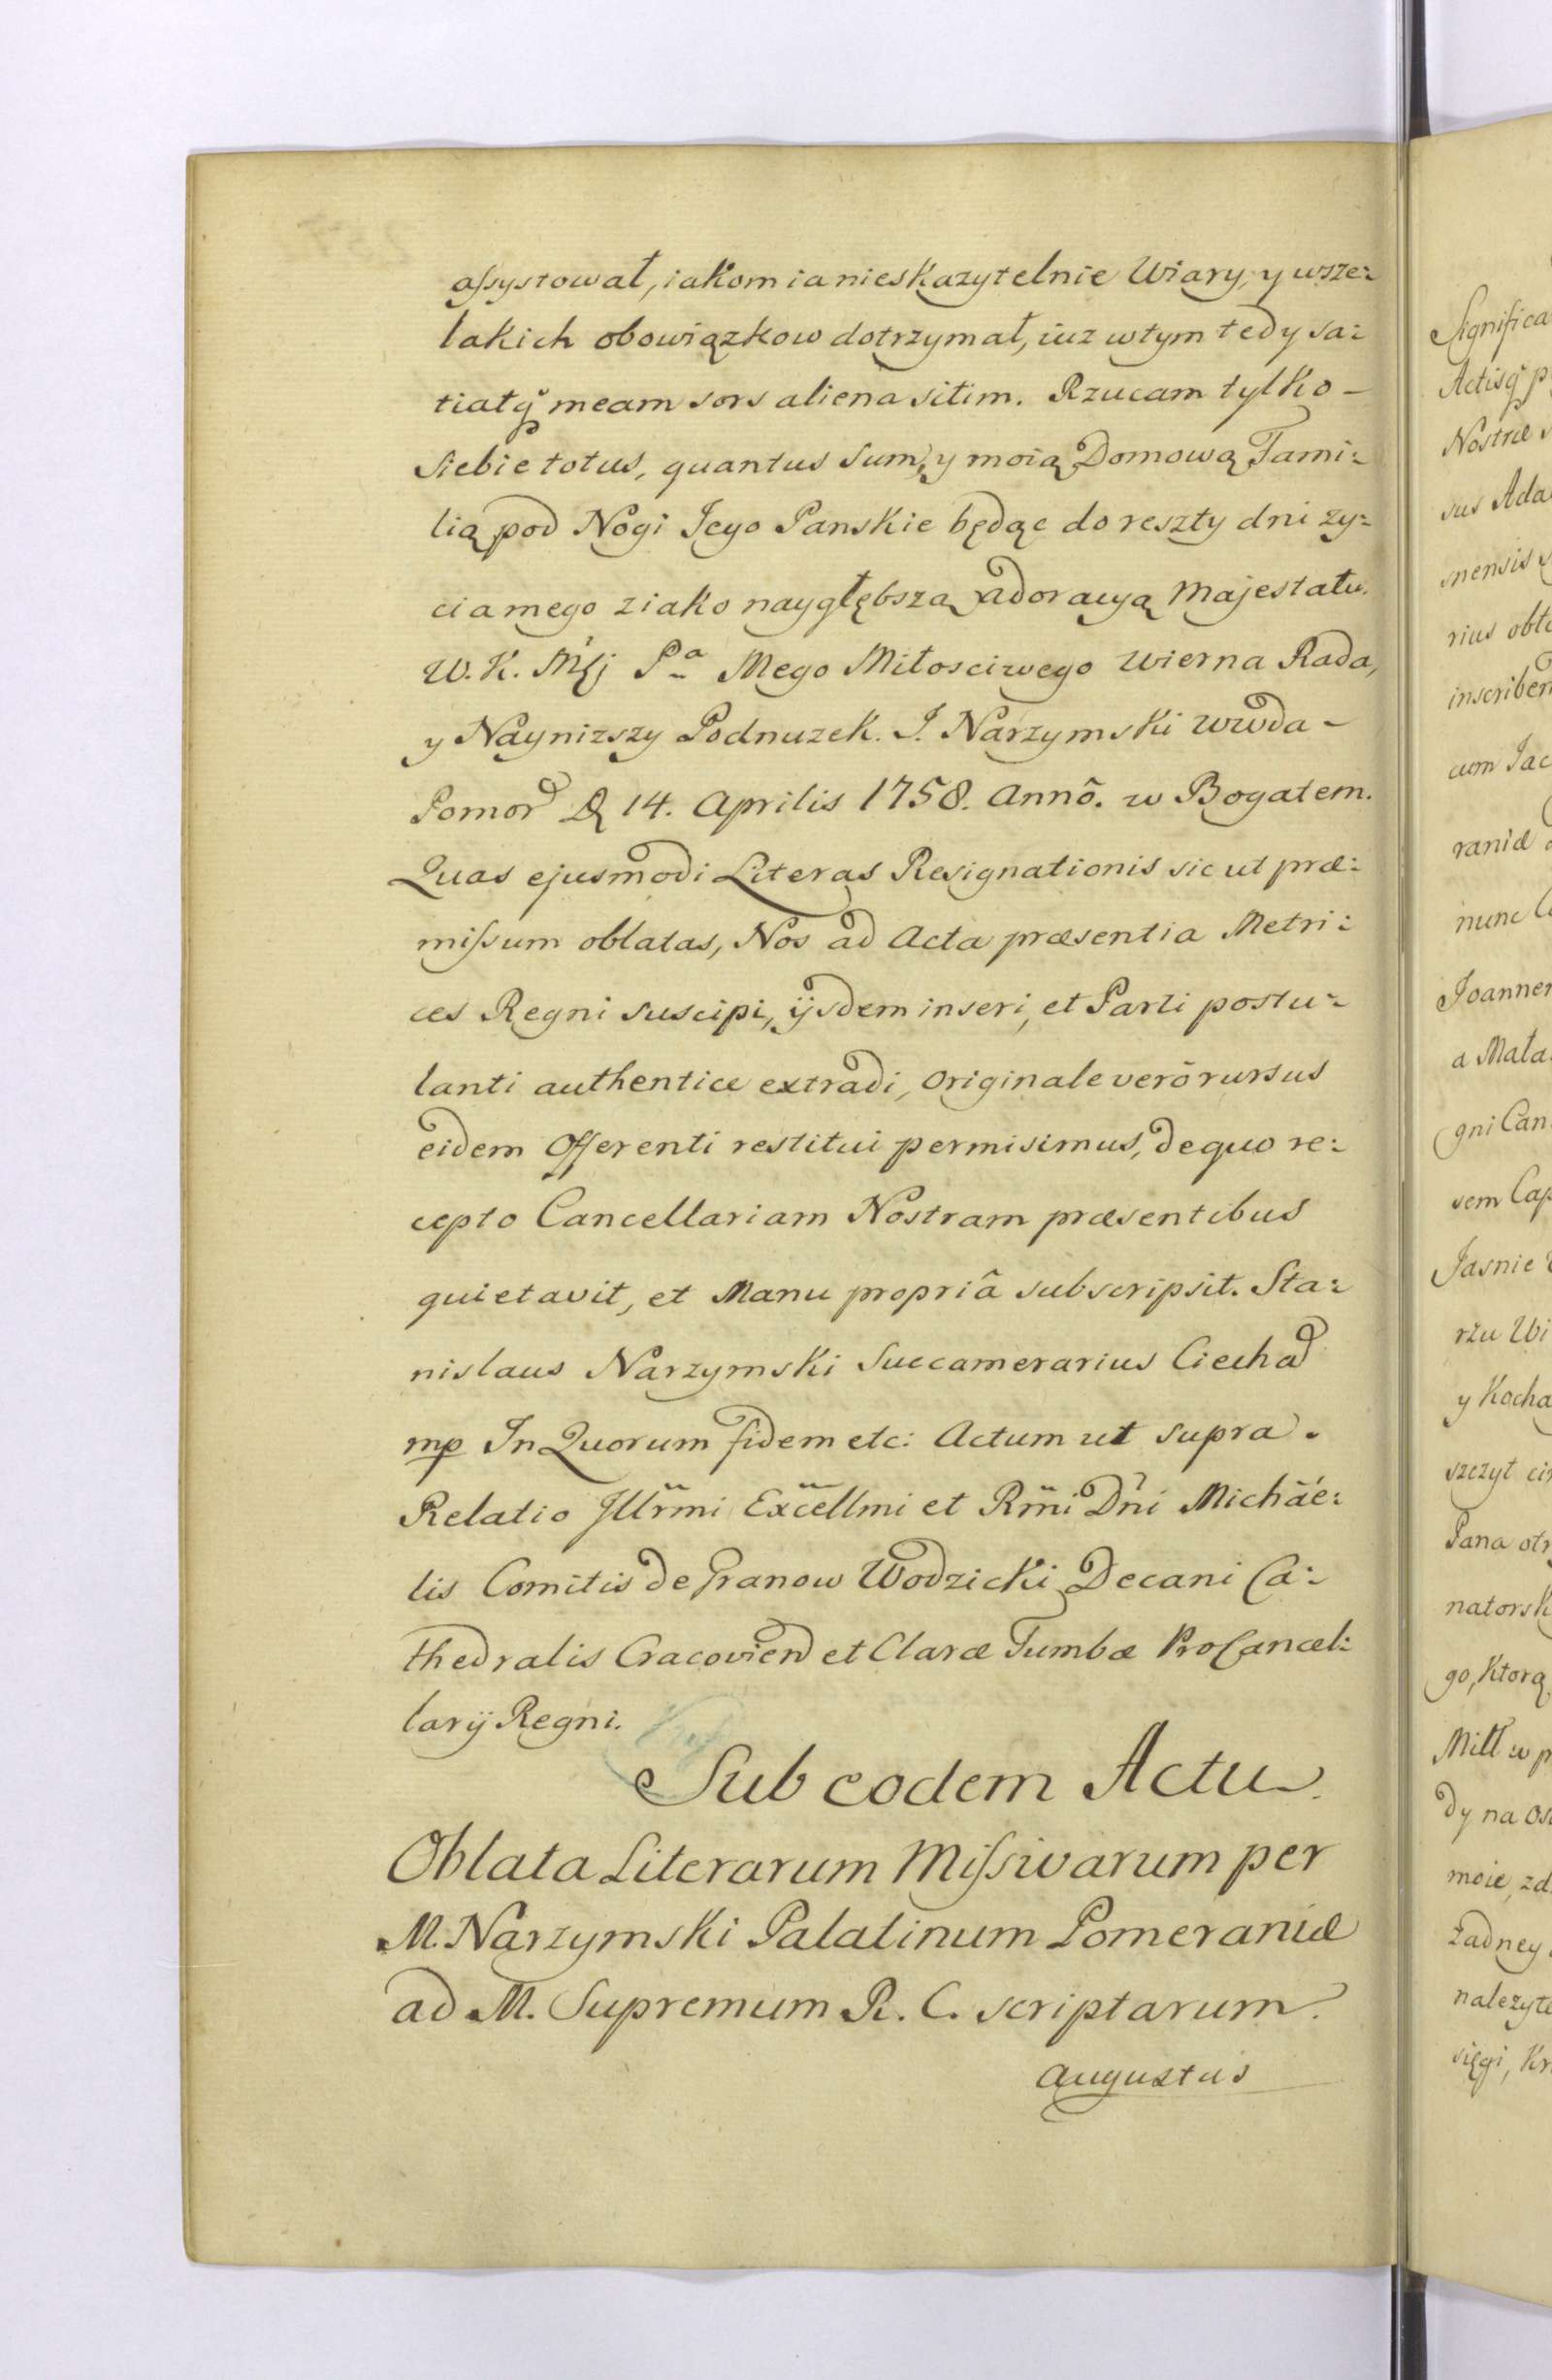 assystował, iakom ia nieskazytelnie Wiary, y wsze:
lakich obowiązkow dotrzymał, iuz w tym tedy sa:
tiatq meam sors aliena sitim. Rzucam tylko -
siebie totus, quantus sum, y moią Domową Fami:
lią pod Nogi Jego Panskie będąc do reszty dni zy:
cia mego z iako naygłębszą adoracyą Majestatu.
W. K. Mci Pa Mego Miłosciwego Wierna Rada,
y Naynizszy Podnuzek. J. Narzymski wwda -
Pomord D 14. Aprilis 1758. Annô. w Bogatem.
Quas ejusmodi Literas Resignationis sic ut præ:
missum oblatas, Nos ad Acta præsentia Metri:
ces Regni suscipi, ijsdem inseri, et Parti postu:
lanti authentice extradi, Originale verô rursus
eidem Offerenti restitui permisimus, de quo re:
cepto Cancellariam Nostram præsentibus
quietavit, et Manu propriâ subscripsit. Sta:
nislaus Narzymski Succamerarius Ciechad
mp In Quorum fidem etc: Actum ut supra.
Relatio Jllrmi Excellmi et Rmni Dni Michaé:
lis Comitis de Granow Wodzicki Decani Ca:
thedralis Cracoviend et Claræ Tumbæ ProCancel:
larij Regni.
Sub eodem Actu.
Oblata Literarum Missivarum per
M. Narzymski Palatinum Pomeraniæ
ad M. Supremum R. C. scriptarum.
Augustus
Significa
Actisq p
Nostræ s
sus Ada
snensis
rius obt
inscriben
cum Jac
raniæ
nunc C
Joannem
a Mała
gni Can
sem Cap
Jasnie
rzu Wi
y Kocha
szczyt ci
Pana otr
natorsk
go, Ktorą
Mill w p
dy na os
moie, zd
żadney
należyte
sięgi, Kr